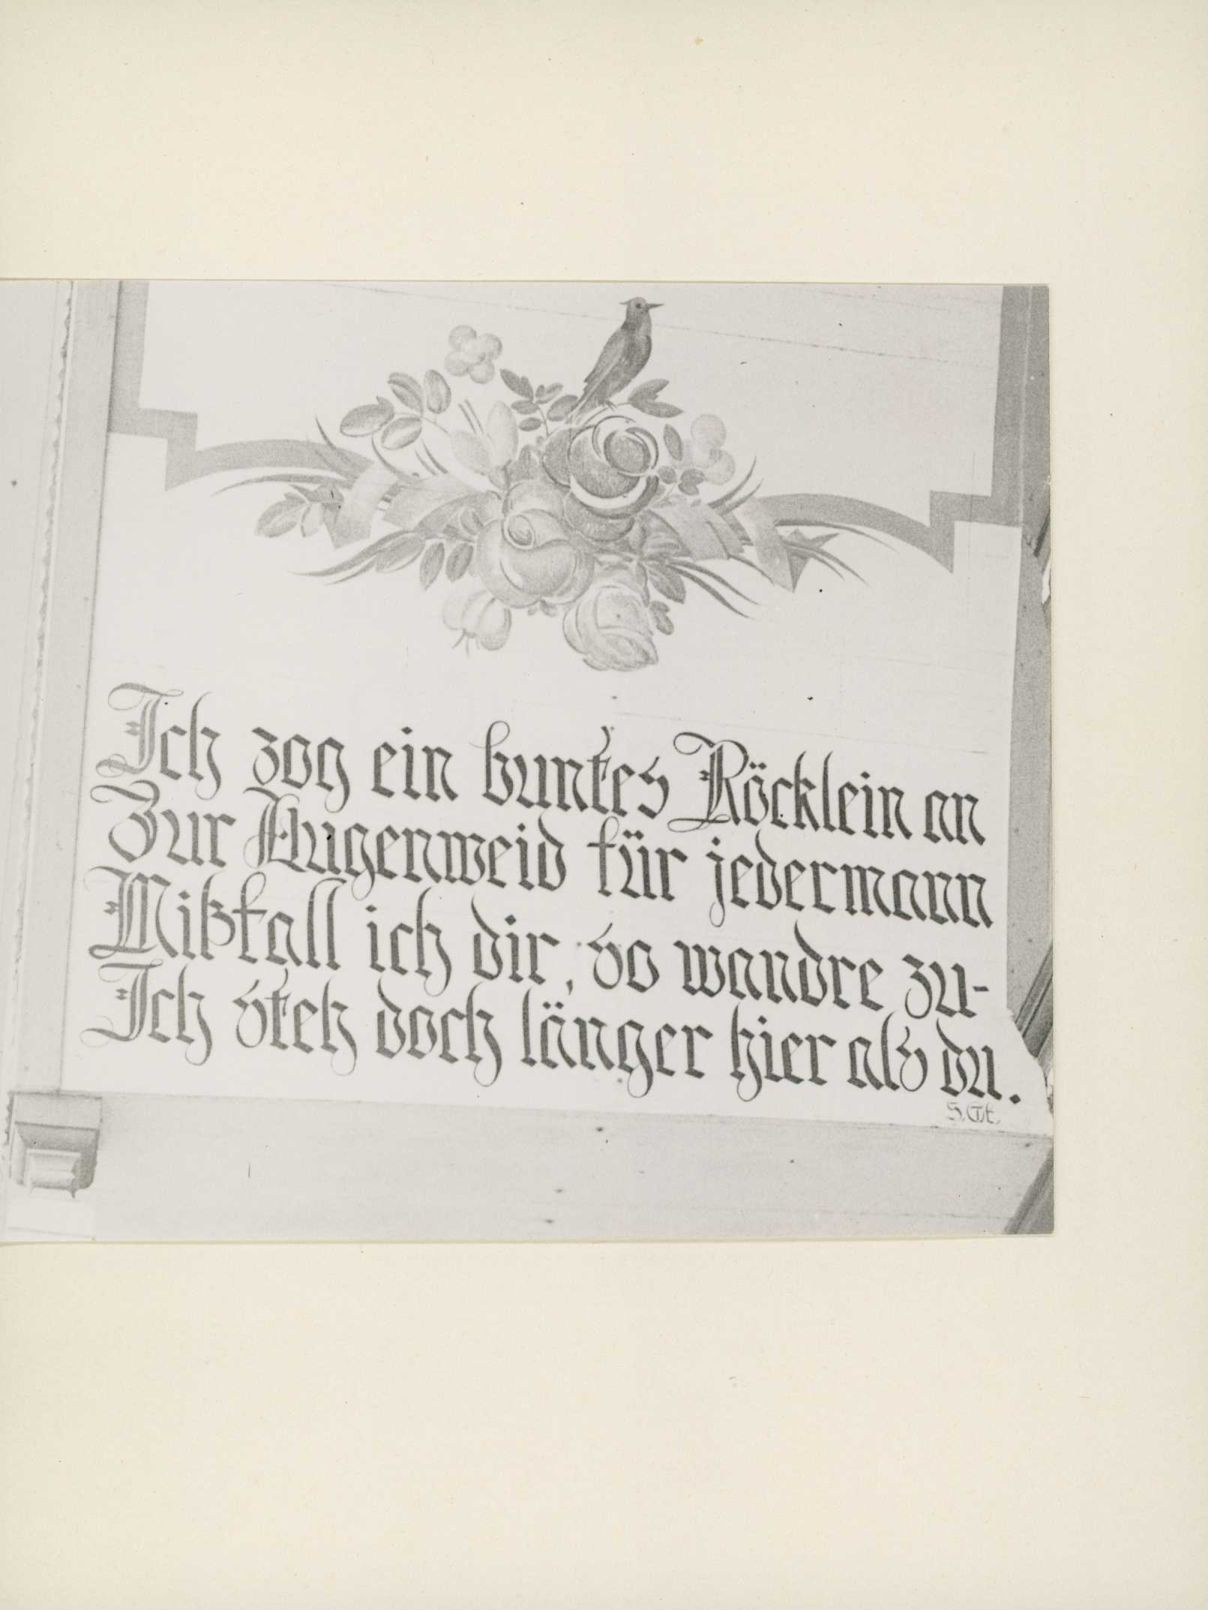 Ich zog ein buntes Röcklein an
Zur Augenweid für jedermann
Mißfall ich dir, so wandre zu-
Ich steh doch länger hier als du.